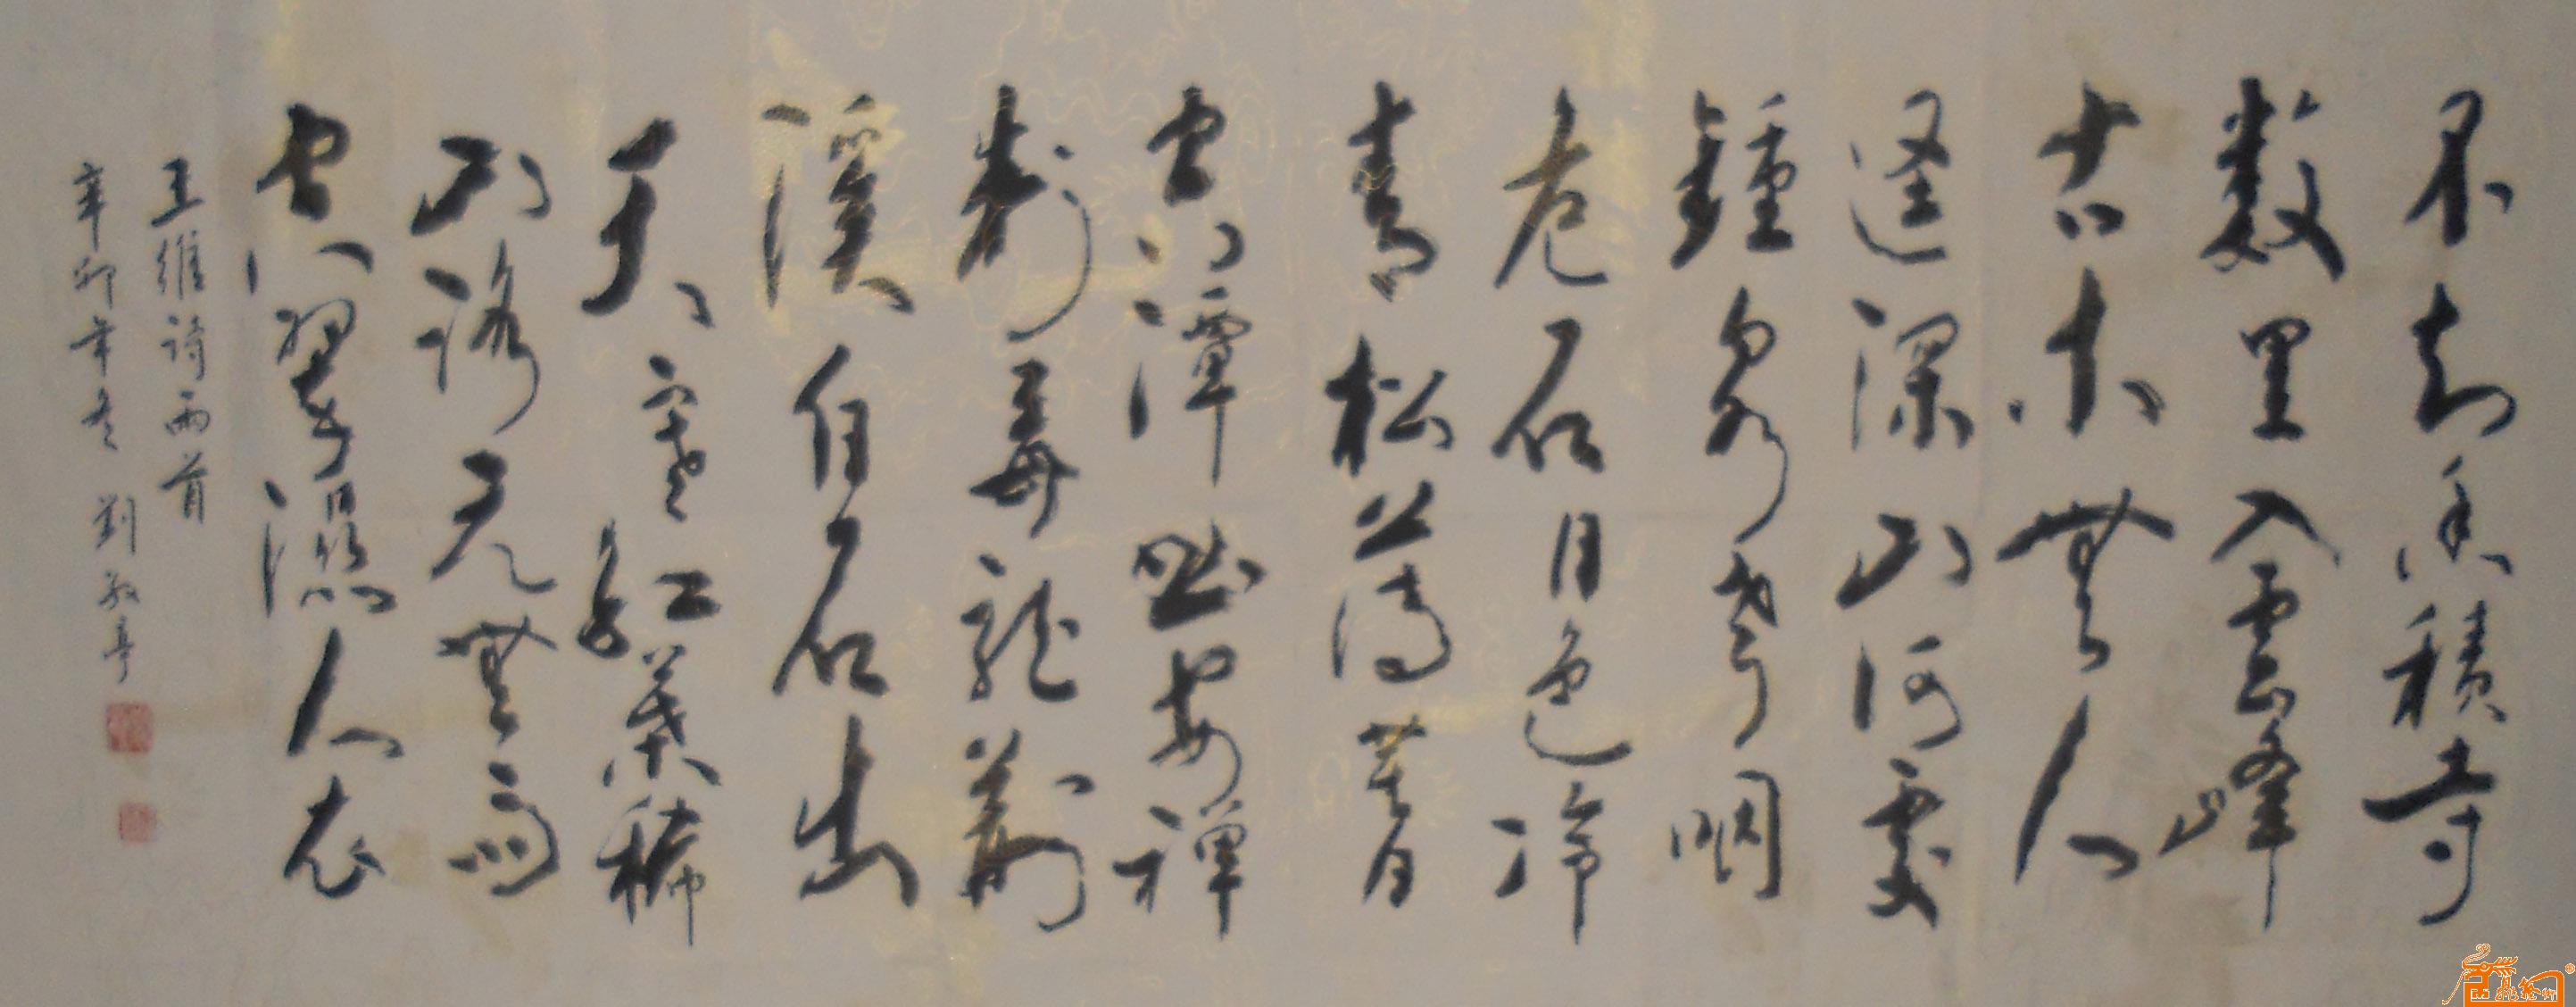 不知香積寺
数里入雲峰
古木無人
逕深山何處
鐘泉聲咽
危石日色冷
青松薄暮
空潭曲安禪
制毒龍荆
溪白石出
天寒紅葉稀
山路元無雨
空翠濕人衣
王維詩兩首
辛卯年冬 劉